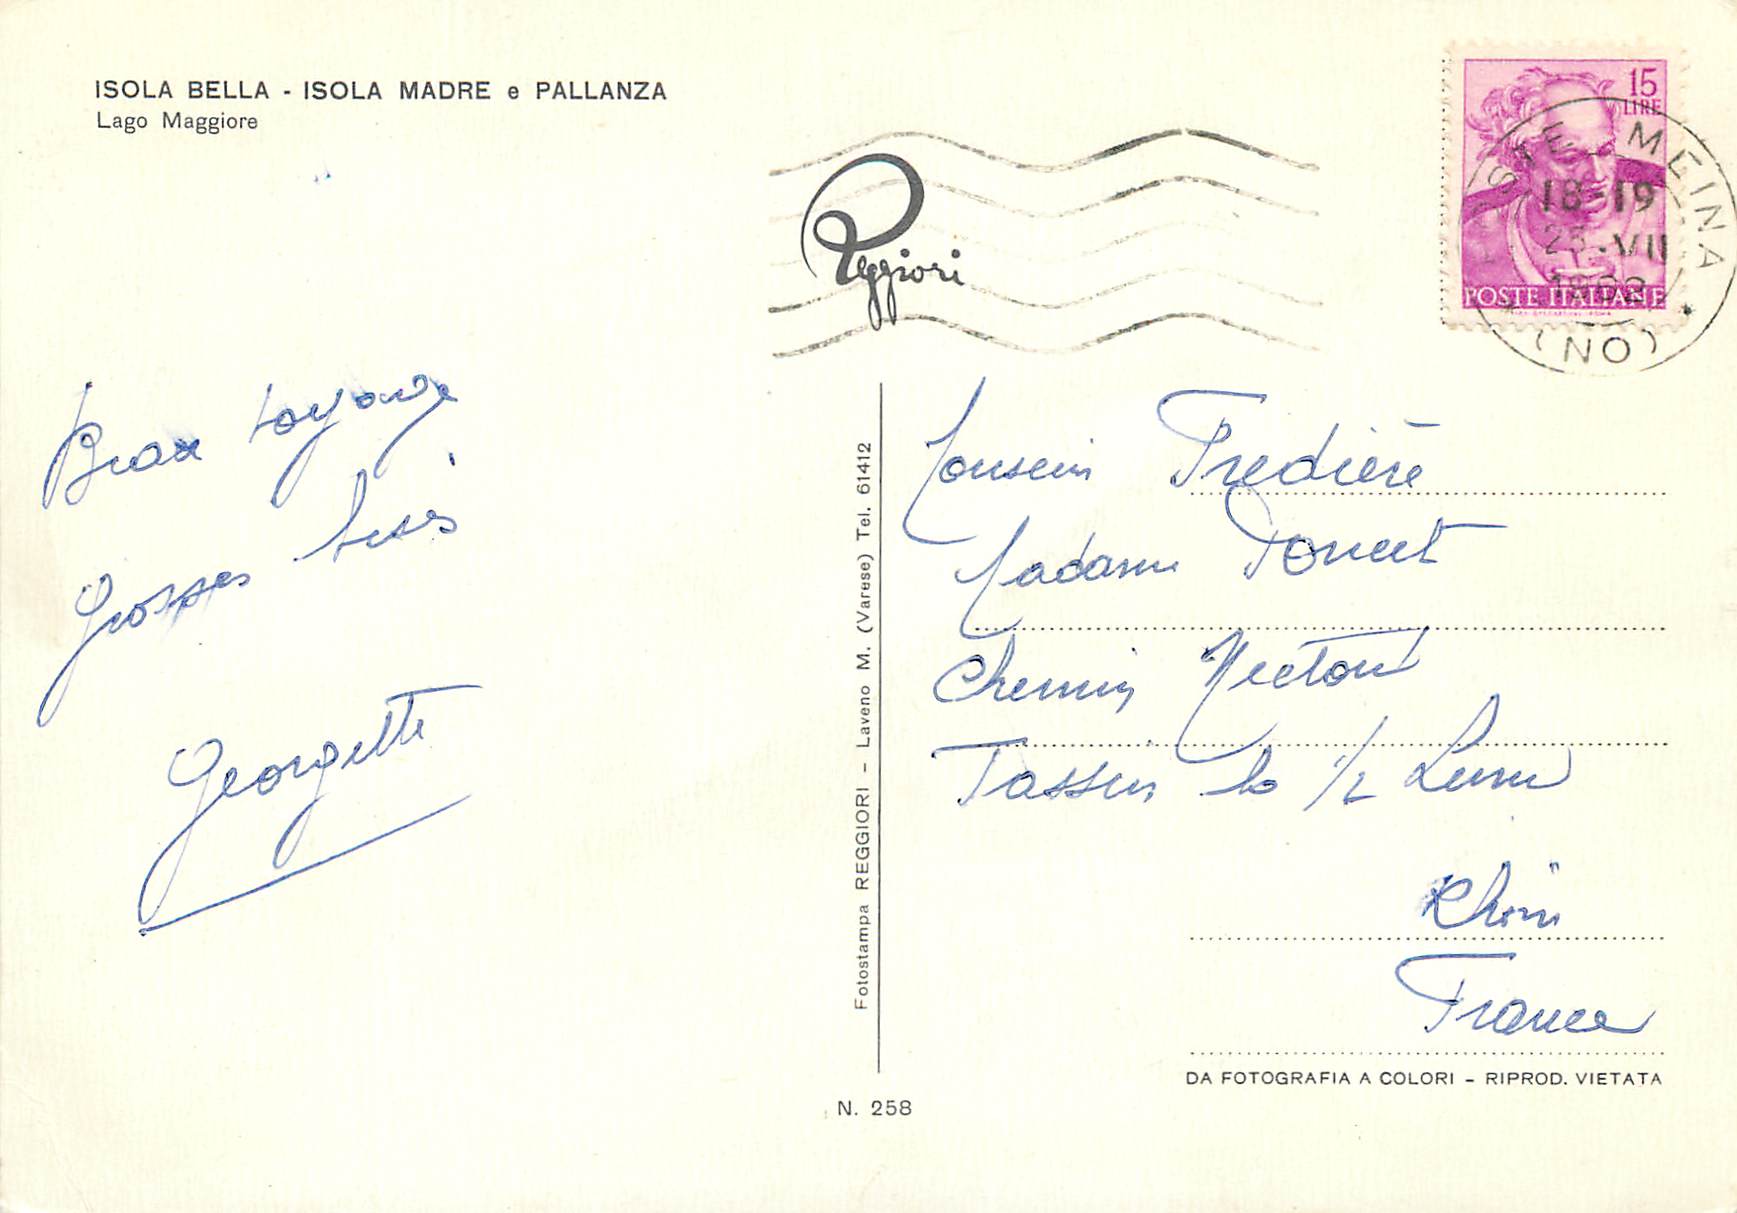 ISOLA BELLA - ISOLA MADRE e PALLANZA
Lago Maggiore
Reggiori
15
LIRE
POSTE ITALIANE
POSTE MEINA
18-19
23.VII
1962
(NO)
Beau voyage
Grosses bises
Georgette
Fotostampa REGGIORI - Laveno M. (Varese) Tel. 61412
Monsieur Predière
Madame Poncet
Chemin
Tassin la 1/2 Lune
Rhône
France
DA FOTOGRAFIA A COLORI - RIPROD. VIETATA
N. 258